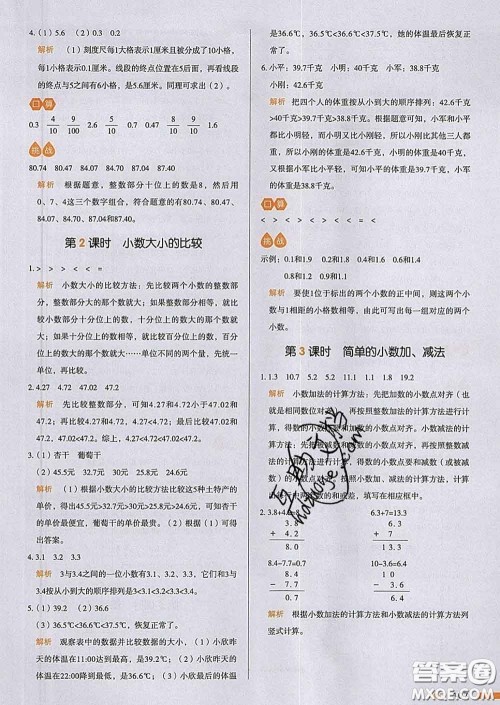 4.(1)5.6 (2)0.3 0.2
解析 (1)刻度尺每1大格表示1厘米且被分成了10小格,
每1小格表示0.1厘米。线段的终点位置在5后面,再看线段
的终点处占6小格,是5.6厘米。同理可求出(2)。
口算
0.3 4/10 9/100 2.6 0.9 5/10 0.7
挑战
80.74 80.47 84.07 84.70 87.04 87.40
解析 根据题意,整数部分十位上的数是8,然后用
0、7、4这三个数字组合,符合题意的有80.74、80.47、
84.07、84.70、87.04和87.40。
第2课时 小数大小的比较
1.> > > < =
解析 小数大小的比较方法:先比较两个小数的整数部
分,整数部分大的那个数就大;如果整数部分相等,就比
较小数部分,十分位上的数大的那个数就大;如果十分位
上的数相等,百分位上的数大的那个数就大……单位不同的两个量,统一单
位后,再比较。
2.4.27 4.72 27.4 47.02
解析 先比较整数部分,可知4.27和4.72小于47.02和
27.4,再分别比较4.27和4.72,47.02和27.4,4.27<4.72,
47.02>27.4,综上,4.27<4.72<27.4<47.02。
3.(1)杏干 葡萄干
(2)45.5元 32.7元 30元 25.8元 24.6元
解析 (1)根据小数大小的比较方法比较这5种土特产的
单价,得出45.5元>32.7元>30元>25.8元>24.6元,可知杏干
的单价最便宜,葡萄干的单价最贵。(2)根据(1)可得
出答案。
4.3.1 3.2 3.3
解析 3与3.4之间的一位小数有3.1、3.2、3.3,它们与3
和3.4从小到大排列是3<3.1<3.2<3.3<3.4。
5.(1)39.2 36.6
(2)36.6℃<36.7℃<37.5℃<38.7℃<39.2℃ (3)恢复正常了。
解析 观察表中的数据并比较数据的大小,(1)小欣昨
天的体温在11:00达到最高,是39.2℃;(2)小欣昨
天的体温在22:00降到最低,是36.6℃,
是36.6℃,36.6℃<36.7℃<37.5℃,她的体温最后恢复正
常了。
6.小平:39.7千克 小明:40千克 小军:38.8千克
小刚:42.6千克
解析 把四个人的体重按从小到大的顺序排列:42.6千克
>40千克>39.7千克>38.8千克。根据题意,小军和小平
都比小明轻,而小明又比小刚轻,所以小刚比其他三人都
重,所以小刚的体重是42.6千克,小明的体重是40千克,
小军又比小平轻,所以小平的体重是39.7千克,小军的体
重是38.8千克。
口算
< > < > < < > < =
挑战
示例:0.1和1.9 0.2和1.8 0.4和1.6 0.6和1.4
0.8和1.2 0.9和1.1
解析 要使1位于标出的两个小数的正中间,则这两个小
数与1相隔的格数相等,据此可以写出每一组对应的两个
小数。
第3课时 简单的小数加、减法
1.1.3 10.7 5.2 15.2 1.1 1.8 19.2
解析 小数加法的计算方法:先把加数的小数点对齐(也
就是相同数位对齐),再按照整数加法的计算方法进行计
算,得数的小数点和加数的小数点对齐。小数减法的计算
方法:先把被减数和减数的小数点对齐,再按照整数减法的
计算方法进行计算,得数的小数点要和减数(或被减数)
的小数点对齐。
3.3.8+4.2=8 6.3+7=13.3
3.8
+ 4.2
8.0
6.3
+ 7
13.3
8.4−7.7=0.7 10−6.4=3.6
8.4
− 7.7
0.7
10
− 6.4
3.6
解析 根据小数加法的计算方法和小数减法的计算方法列
竖式计算。
答案圈
MXQE.COM